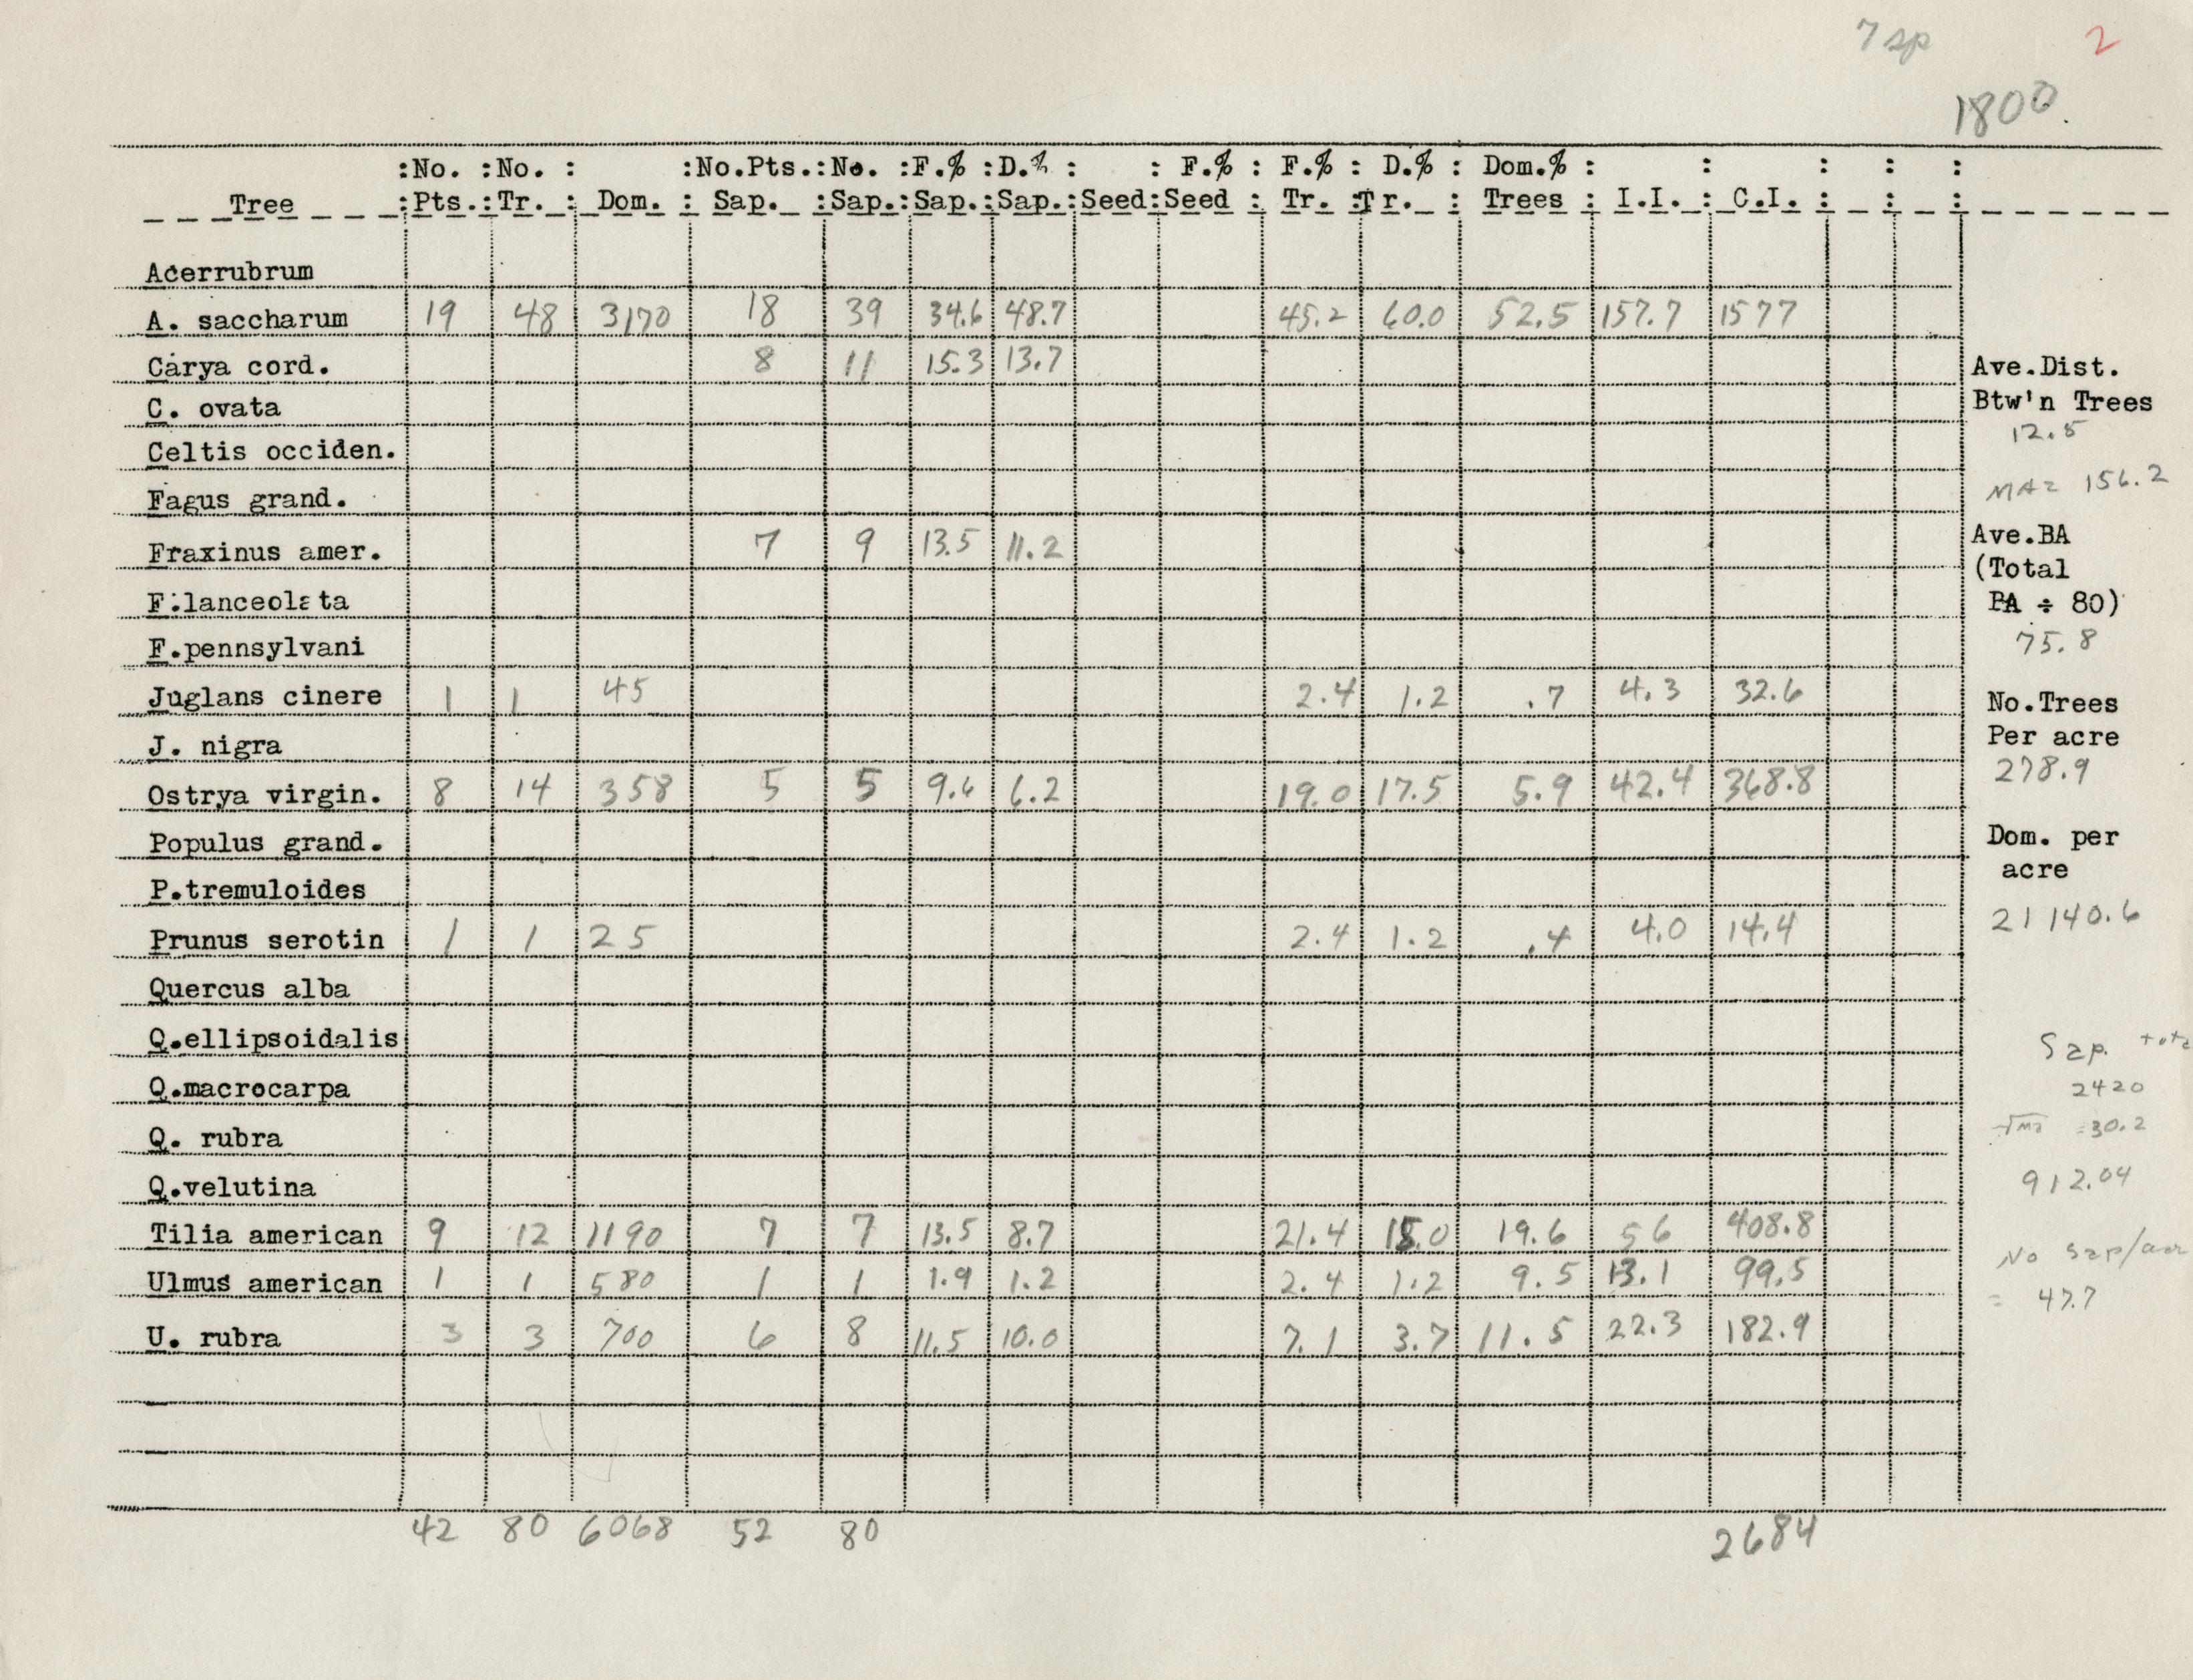 7 sp 2
1800.
:No. :No. : :No.Pts.:No. :F.% :D.% : : F.% : F.% : D.% : Dom.% : : : : :
Tree :Pts.:Tr. : Dom. : Sap. :Sap.:Sap.:Sap.:Seed:Seed : Tr. :Tr. : Trees : I.I. : C.I. : : :
Acerrubrum
A. saccharum 19 48 3170 18 39 34.6 48.7 45.2 60.0 52.5 157.7 1577
Carya cord. 8 11 15.3 13.7 Ave.Dist.
C. ovata Btw'n Trees
12.5
Celtis occiden.
Fagus grand. MA= 156.2
Fraxinus amer. 7 9 13.5 11.2 Ave.BA
(Total
F.lanceolata BA ÷ 80)
F.pennsylvani 75.8
Juglans cinere 1 1 45 2.4 1.2 .7 4.3 32.6 No.Trees
J. nigra Per acre
278.9
Ostrya virgin. 8 14 358 5 5 9.6 6.2 19.0 17.5 5.9 42.4 368.8
Populus grand. Dom. per
acre
P.tremuloides
Prunus serotin 1 1 25 2.4 1.2 .4 4.0 14.4 21140.6
Quercus alba
Q.ellipsoidalis Sap.
Q.macrocarpa 2420
Q. rubra =30.2
Q.velutina 912.04
Tilia american 9 12 1190 7 7 13.5 8.7 21.4 15.0 19.6 56 408.8
Ulmus american 1 1 580 1 1 1.9 1.2 2.4 1.2 9.5 13.1 99.5 No Sap/acr
U. rubra 3 3 700 6 8 11.5 10.0 7.1 3.7 11.5 22.3 182.9 = 47.7
42 80 6068 52 80 2684